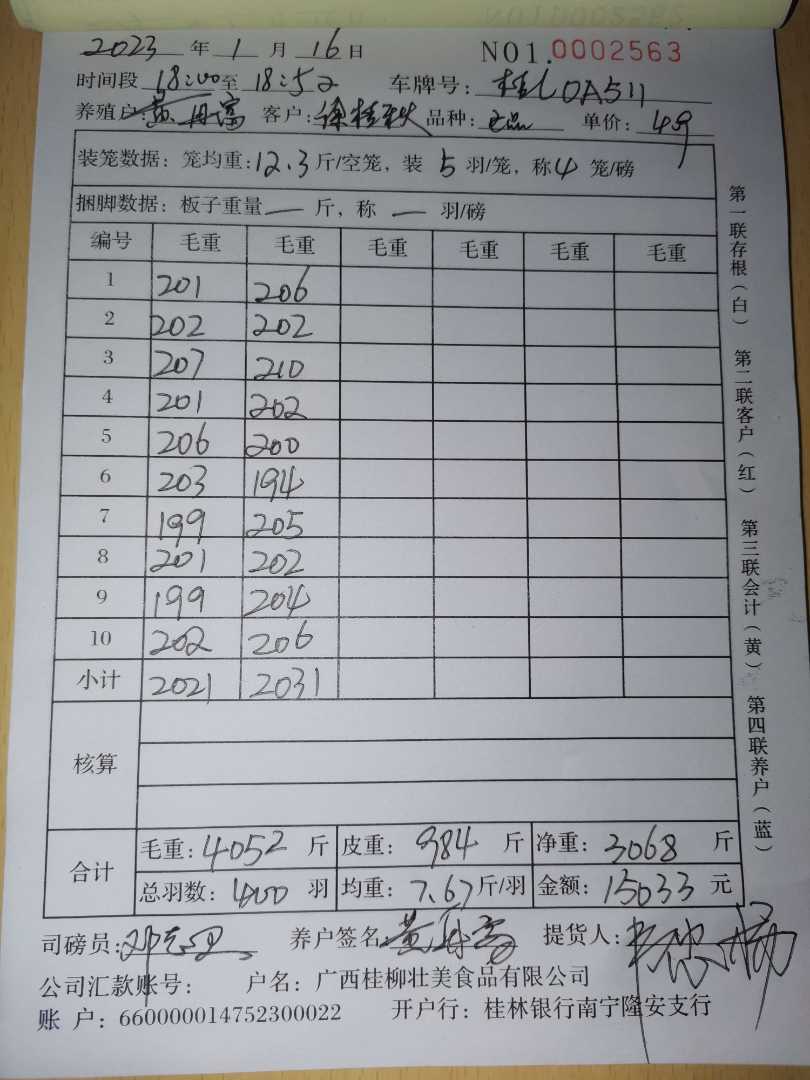 2023 年 1 月 16 日 NO1.0002563
时间段 18:00 至 18:52 车牌号: 桂L0A511
养殖户: 黄丹富 客户: 徐桂秋 品种: 单价: 4.9
装笼数据: 笼均重: 12.3 斤/空笼, 装 5 羽/笼, 称 4 笼/磅
捆脚数据: 板子重量 — 斤, 称 — 羽/磅
编号 毛重 毛重 毛重 毛重 毛重 毛重
1 201 206
2 202 202
3 207 210
4 201 202
5 206 200
6 203 194
7 199 205
8 201 202
9 199 204
10 202 206
小计 2021 2031
核算
合计 毛重: 4052 斤 皮重: 984 斤 净重: 3068 斤
总羽数: 400 羽 均重: 7.67 斤/羽 金额: 15033 元
司磅员: 养户签名: 黄丹富 提货人:
公司汇款账号: 户名: 广西桂柳壮美食品有限公司
账 户: 660000014752300022 开户行: 桂林银行南宁隆安支行
第一联存根(白) 第二联客户(红) 第三联会计(黄) 第四联养户(蓝)